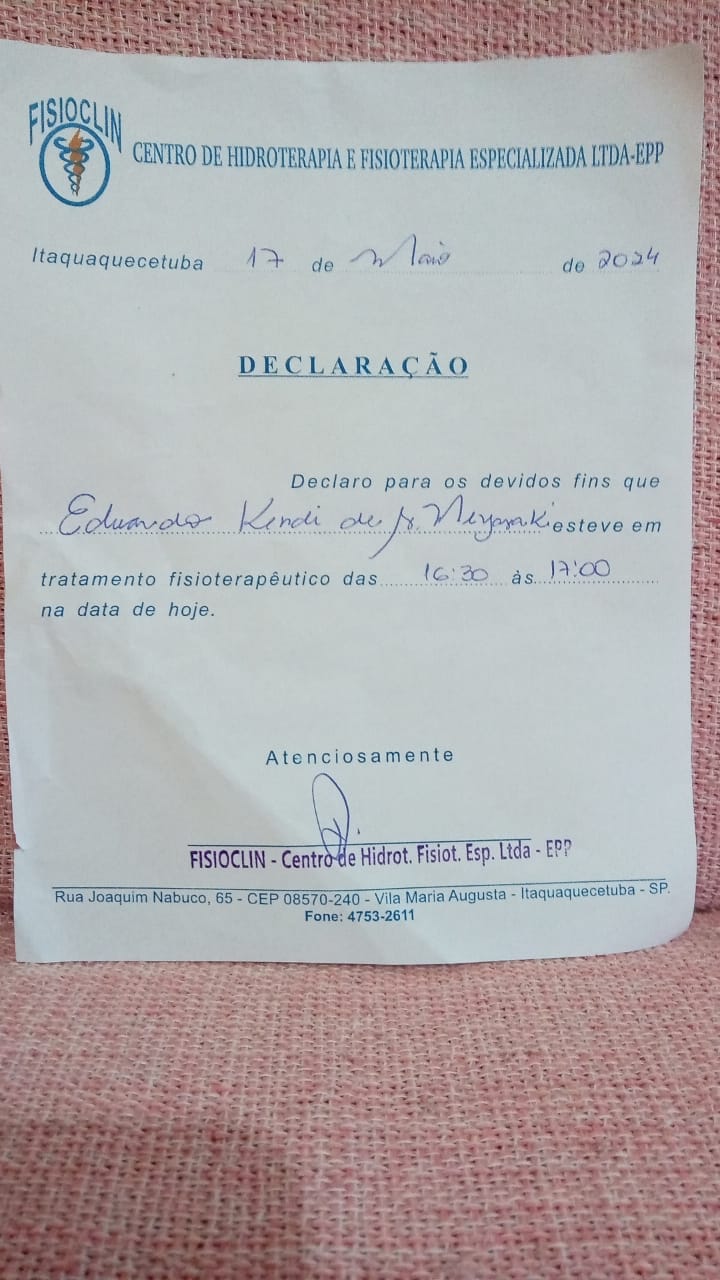 FISIOCLIN
CENTRO DE HIDROTERAPIA E FISIOTERAPIA ESPECIALIZADA LTDA-EPP
Itaquaquecetuba 17 de Maio de 2024
DECLARAÇÃO
Declaro para os devidos fins que
Eduardo Kendi de esteve em
tratamento fisioterapêutico das 16:30 às 17:00
na data de hoje.
Atenciosamente
FISIOCLIN - Centro de Hidrot. Fisiot. Esp. Ltda - EPP
Rua Joaquim Nabuco, 65 - CEP 08570-240 - Vila Maria Augusta - Itaquaquecetuba - SP.
Fone: 4753-2611